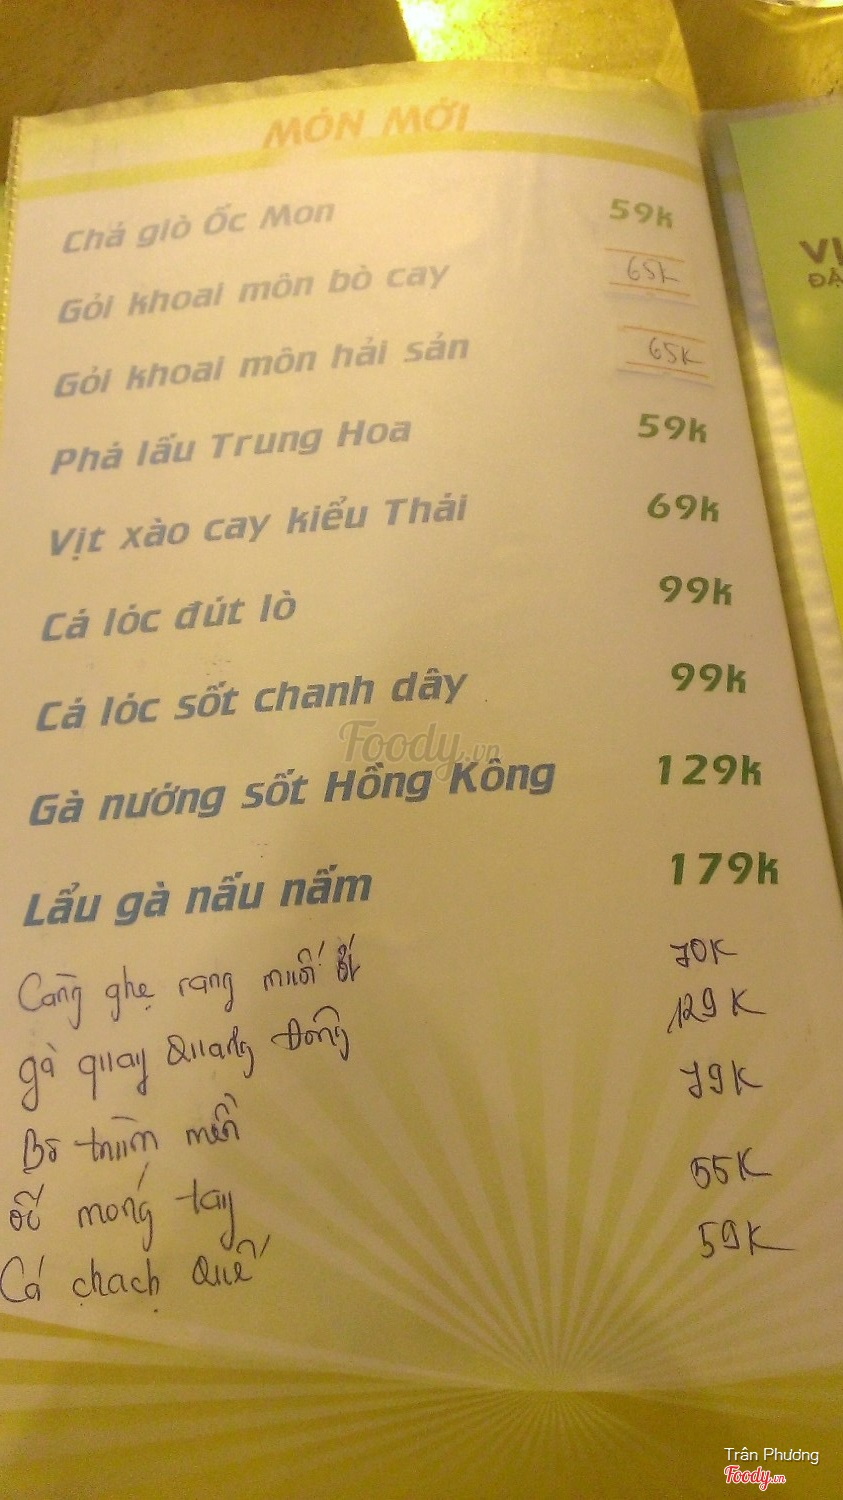 MÓN MỚI
Chả giò Ốc Mon 59k
Gỏi khoai môn bò cay 65k
Gỏi khoai môn hải sản 65K
Phá lấu Trung Hoa 59k
Vịt xào cay kiểu Thái 69k
Cá lóc đút lò 99k
Cá lóc sốt chanh dây 99k
Foody.vn
Gà nướng sốt Hồng Kông 129k
Lẩu gà nấu nấm 179k
Càng ghẹ rang muối ớt 70K
gà quay Quảng Đông 129K
Bò trùm mền 79K
ốc móng tay 55K
Cá chạch Quế 59K
VI
ĐẶ
Trân Phương
Foody.vn